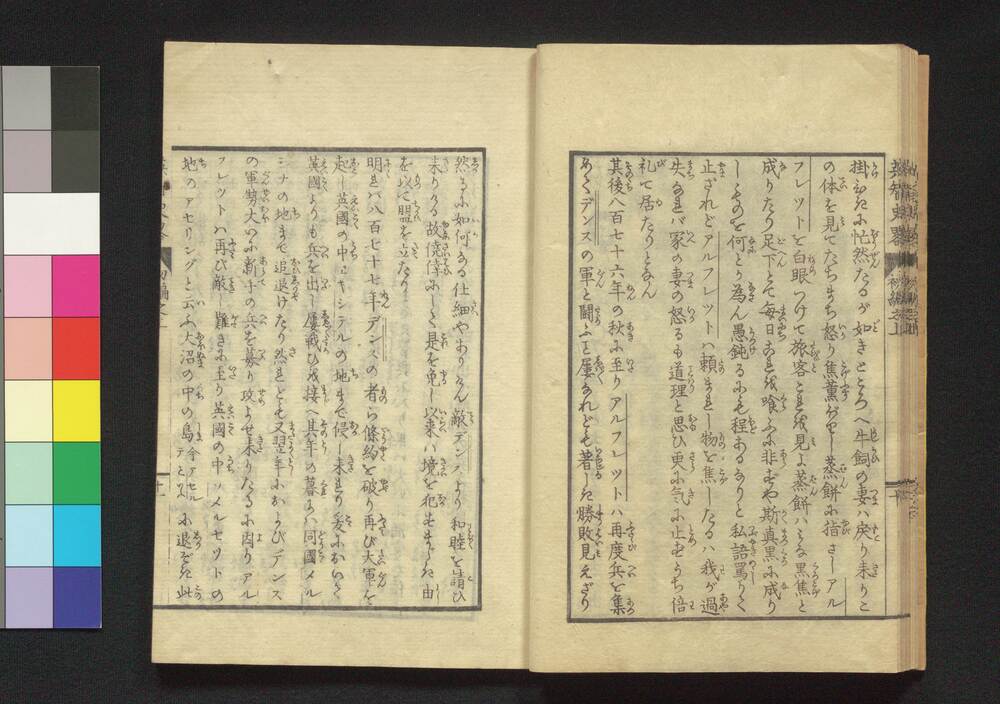 掛わきに忙然たるが如きところへ牛飼の妻ハ戻り来りこ
の体を見てたちまち怒り焦薫がりし蒸餅に指さしアル
フレットを白眼つけて旅客これを見よ蒸餅ハミな黒焦と
成りたり足下とて毎日これを喰ふに非ずや斯真黒に成り
しものを何とか為ん愚鈍にも程あるなりと私語罵りて
止ざれどアルフレットハ頼まれし物を焦したるハ我が過
失なれバ家の妻の怒るも道理と思ひ更に気に止ずうち
礼て居たりとなん
其後八百七十六年の秋に至りアルフレットハ再度兵を集
めてデンスの軍と闘ふこと屡なれども著しき勝敗見えざり
然るに如何なる仕細やありけん敵デンスより和睦を請ひ
来りける故僥倖にして是を免し以来ハ境を犯すまじき由
を以て盟を立たり
明れバ八百七十七年デンスの者ら條約を破り再び大軍を
起し英國の中キシテルの地まで侵し来れり爰において
英國よりも兵を出し屡戦ひ接へ其年の暮にハ同國メル
シナの地まで追退けたり然れども又翌年におよびデンス
の軍勢大いに新手の兵を募り攻よせ来りたるに因りアル
フレットハ再び敵し難きに至り英國の中ソメルセツトの
地のアセリングと云ふ大沼の中の島に退ぞき此